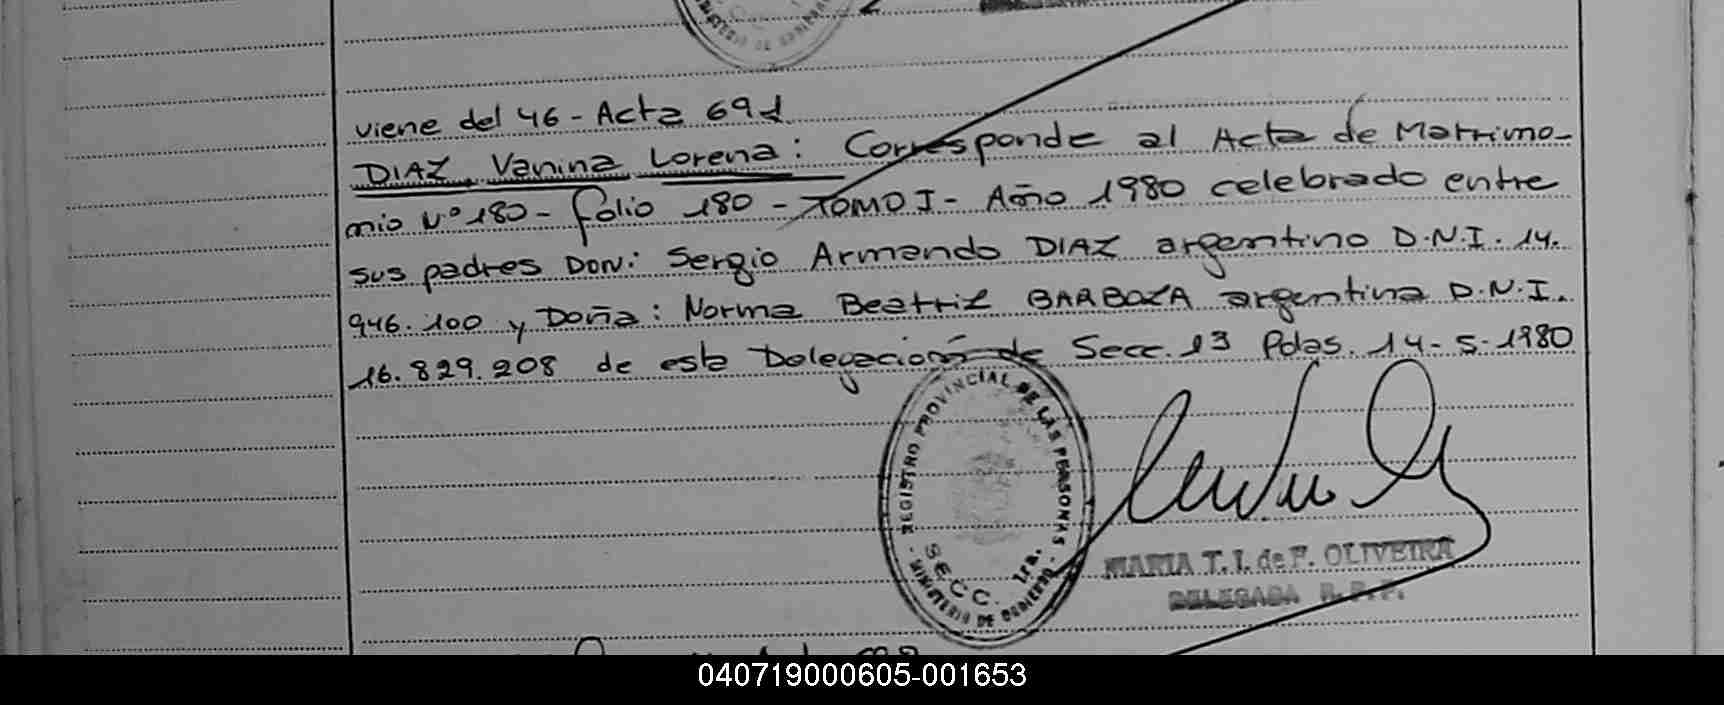 viene del 46 - Acta 691
DIAZ, Vanina Lorena: Corresponde al Acta de Matrimo-
nio Nº 180 - folio 180 - TOMO I - Año 1980 celebrado entre
sus padres Don: Sergio Armando DIAZ argentino D.N.I. 14.
946.100 y Doña: Norma Beatriz BARBOZA argentina D.N.I.
16.829.208 de esta Delegación de Secc. 13 Pdas. 14-5-1980
REGISTRO PROVINCIAL DE LAS PERSONAS
SECC. 1ra.
- MINISTERIO DE GOBIERNO -
MARIA T. I. de F. OLIVEIRA
DELEGADA R. P. P.
040719000605-001653